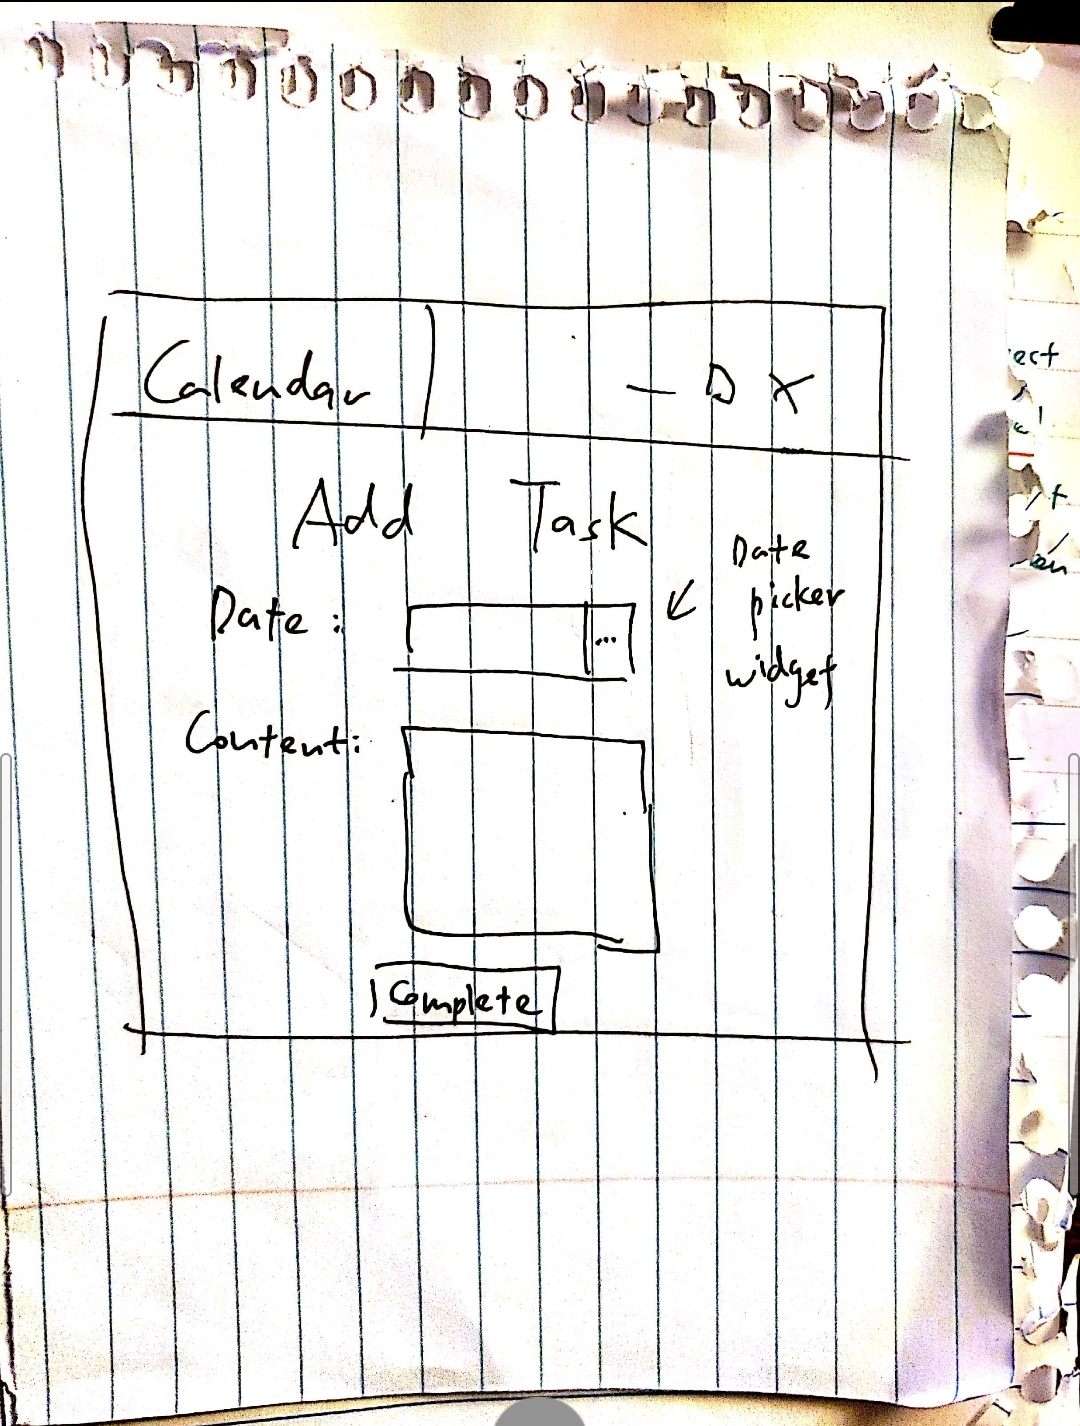 Calendar
Add Task
Date:
...
Date
picker
widget
Content:
Complete
ect